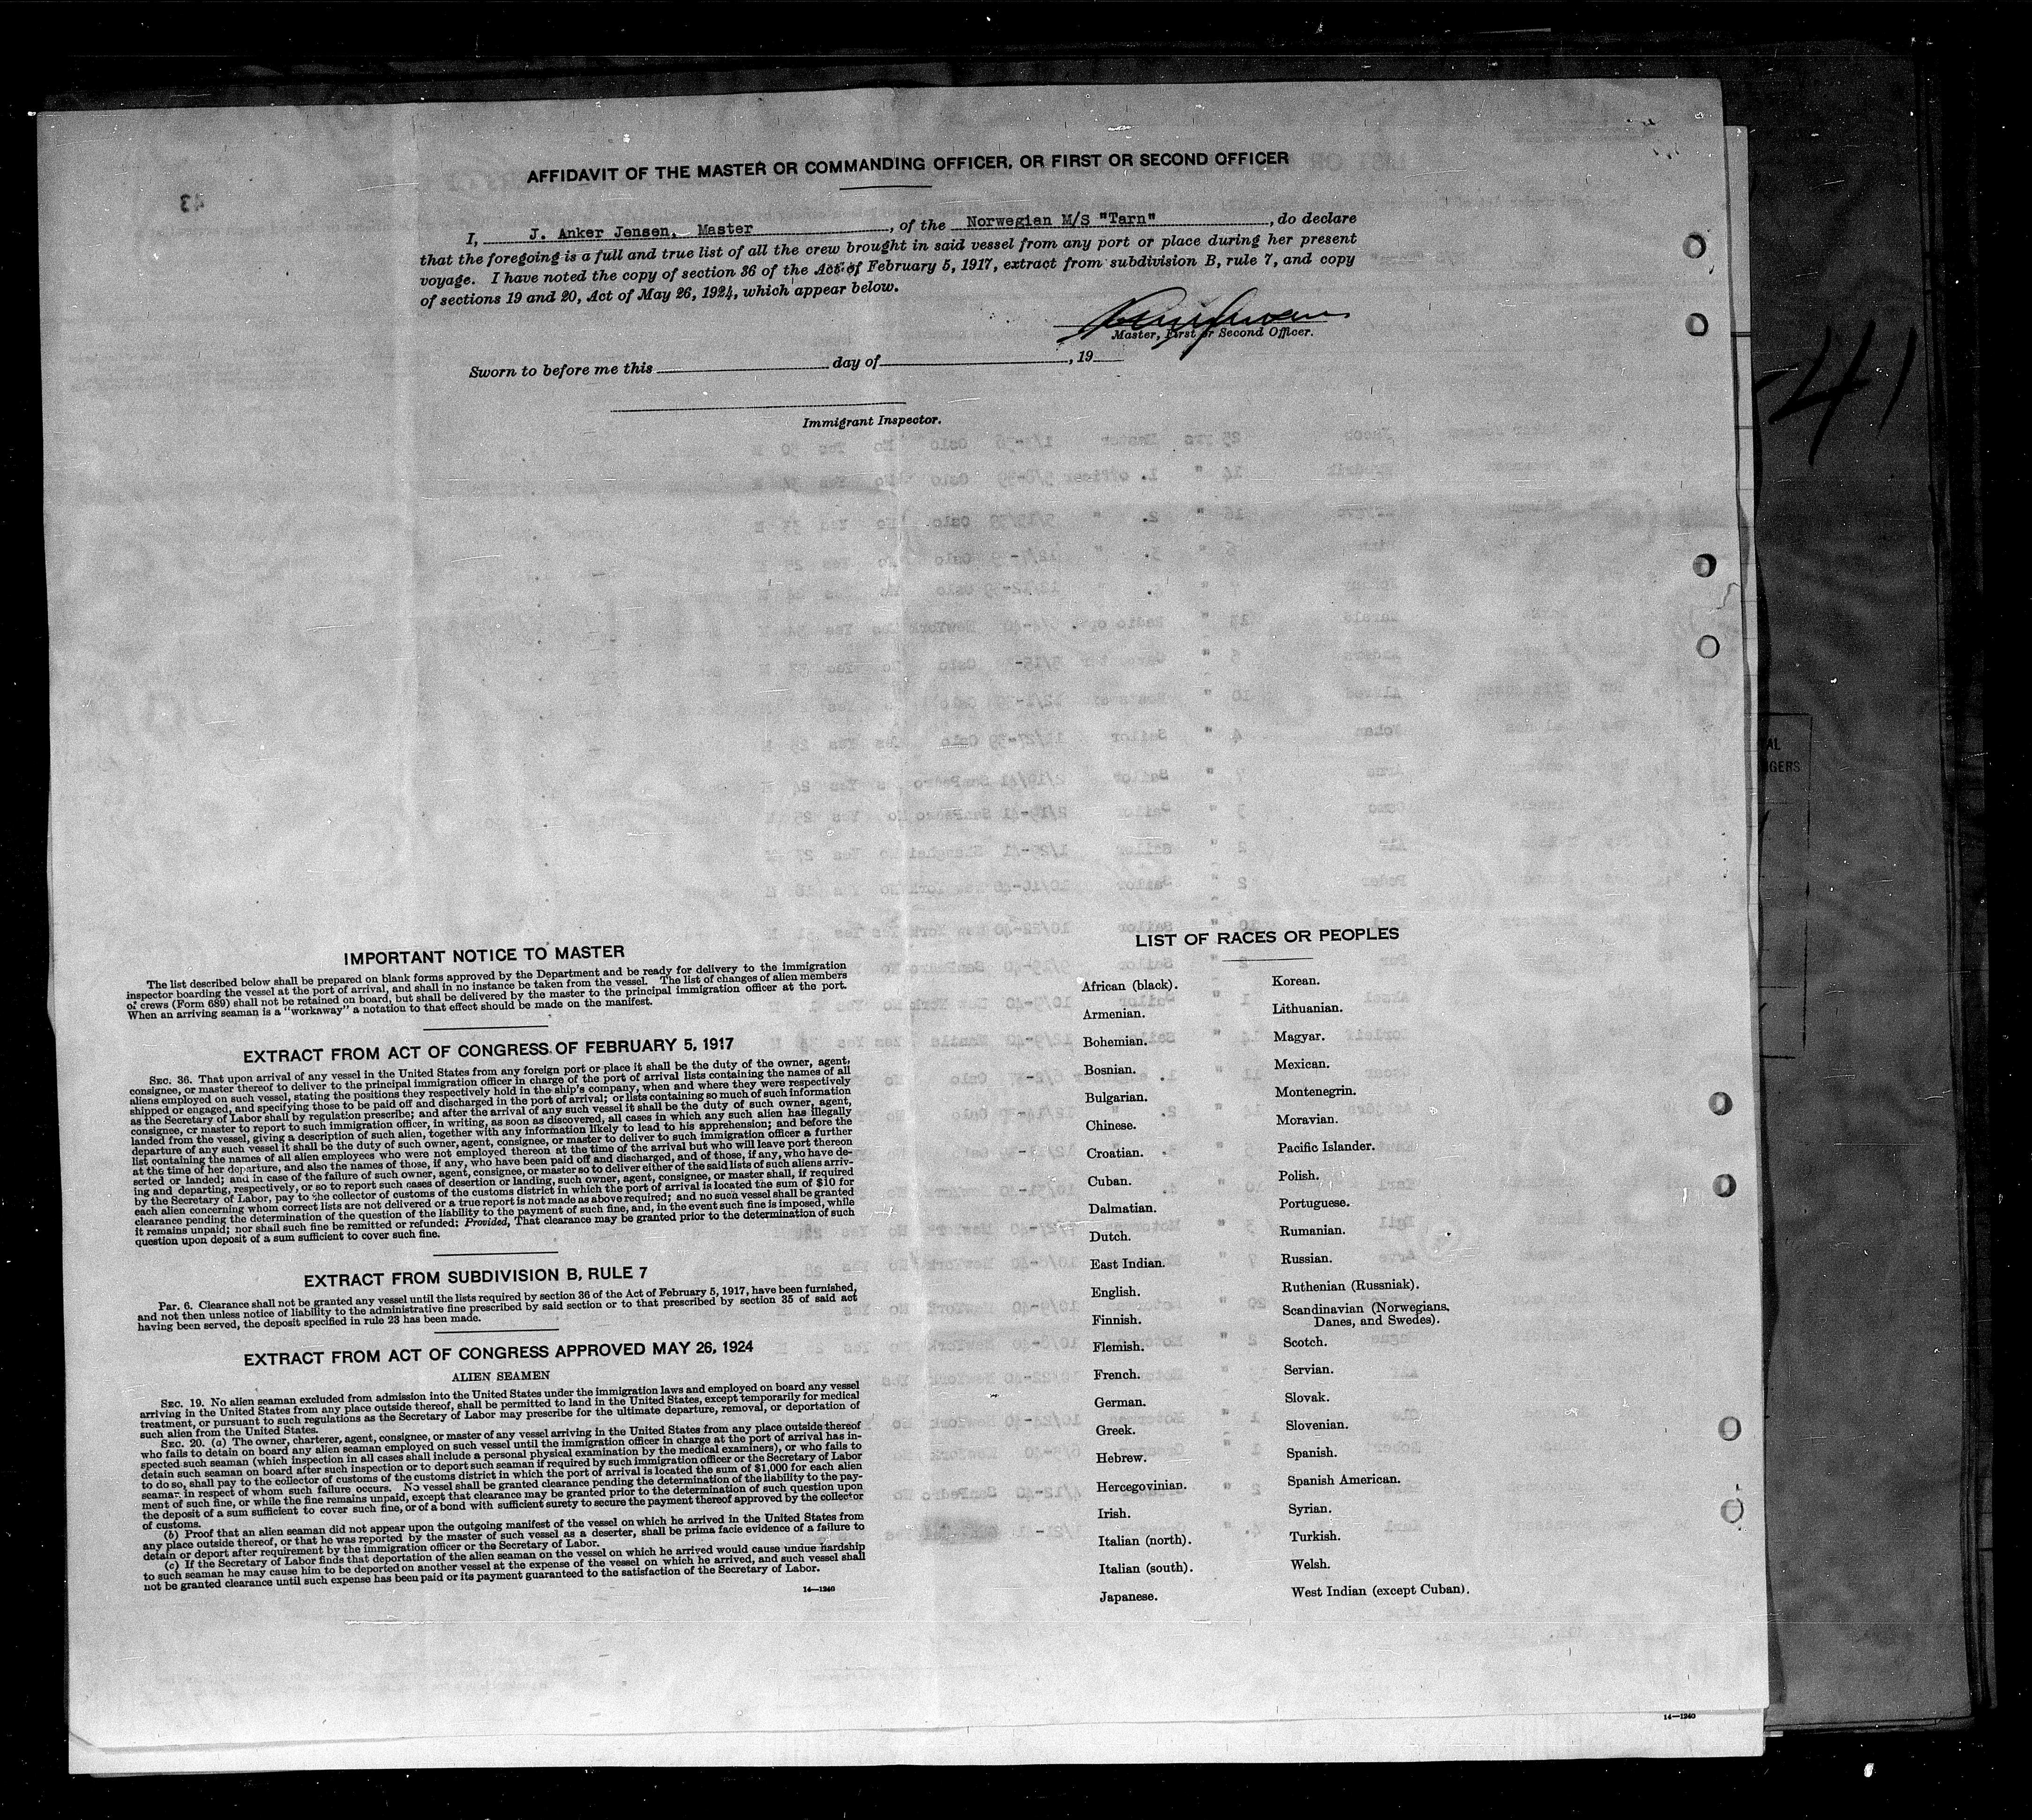 AFFIDAVIT OF THE MASTER OR COMMANDING OFFICER, OR FIRST OR SECOND OFFICER
43
I, J. Anker Jensen, Master, of the Norwegian M/S "Tarn", do declare
that the foregoing is a full and true list of all the crew brought in said vessel from any port or place during her present
voyage. I have noted the copy of section 36 of the Act of February 5, 1917, extract from subdivision B, rule 7, and copy
of sections 19 and 20, Act of May 26, 1924, which appear below.
Master, First or Second Officer.
Sworn to before me this day of , 19
Immigrant Inspector.
-41
AL
NGERS
IMPORTANT NOTICE TO MASTER
The list described below shall be prepared on blank forms approved by the Department and be ready for delivery to the immigration
inspector boarding the vessel at the port of arrival, and shall in no instance be taken from the vessel. The list of changes of alien members
of crews (Form 689) shall not be retained on board, but shall be delivered by the master to the principal immigration officer at the port.
When an arriving seaman is a "workaway" a notation to that effect should be made on the manifest.
EXTRACT FROM ACT OF CONGRESS OF FEBRUARY 5, 1917
SEC. 36. That upon arrival of any vessel in the United States from any foreign port or place it shall be the duty of the owner, agent,
consignee, or master thereof to deliver to the principal immigration officer in charge of the port of arrival lists containing the names of all
aliens employed on such vessel, stating the positions they respectively hold in the ship's company, when and where they were respectively
shipped or engaged, and specifying those to be paid off and discharged in the port of arrival; or lists containing so much of such information
as the Secretary of Labor shall by regulation prescribe; and after the arrival of any such vessel it shall be the duty of such owner, agent,
consignee, or master to report to such immigration officer, in writing, as soon as discovered, all cases in which any such alien has illegally
landed from the vessel, giving a description of such alien, together with any information likely to lead to his apprehension; and before the
departure of any such vessel it shall be the duty of such owner, agent, consignee, or master to deliver to such immigration officer a further
list containing the names of all alien employees who were not employed thereon at the time of the arrival but who will leave port thereon
at the time of her departure, and also the names of those, if any, who have been paid off and discharged, and of those, if any, who have de-
serted or landed; and in case of the failure of such owner, agent, consignee, or master so to deliver either of the said lists of such aliens arriv-
ing and departing, respectively, or so to report such cases of desertion or landing, such owner, agent, consignee, or master shall, if required
by the Secretary of Labor, pay to the collector of customs of the customs district in which the port of arrival is located the sum of $10 for
each alien concerning whom correct lists are not delivered or a true report is not made as above required; and no such vessel shall be granted
clearance pending the determination of the question of the liability to the payment of such fine, and, in the event such fine is imposed, while
it remains unpaid; nor shall such fine be remitted or refunded: Provided, That clearance may be granted prior to the determination of such
question upon deposit of a sum sufficient to cover such fine.
EXTRACT FROM SUBDIVISION B, RULE 7
Par. 6. Clearance shall not be granted any vessel until the lists required by section 36 of the Act of February 5, 1917, have been furnished,
and not then unless notice of liability to the administrative fine prescribed by said section or to that prescribed by section 35 of said act
having been served, the deposit specified in rule 23 has been made.
EXTRACT FROM ACT OF CONGRESS APPROVED MAY 26, 1924
ALIEN SEAMEN
SEC. 19. No alien seaman excluded from admission into the United States under the immigration laws and employed on board any vessel
arriving in the United States from any place outside thereof, shall be permitted to land in the United States, except temporarily for medical
treatment, or pursuant to such regulations as the Secretary of Labor may prescribe for the ultimate departure, removal, or deportation of
such alien from the United States.
SEC. 20. (a) The owner, charterer, agent, consignee, or master of any vessel arriving in the United States from any place outside thereof
who fails to detain on board any alien seaman employed on such vessel until the immigration officer in charge at the port of arrival has in-
spected such seaman (which inspection in all cases shall include a personal physical examination by the medical examiners), or who fails to
detain such seaman on board after such inspection or to deport such seaman if required by such immigration officer or the Secretary of Labor
to do so, shall pay to the collector of customs of the customs district in which the port of arrival is located the sum of $1,000 for each alien
seaman in respect of whom such failure occurs. No vessel shall be granted clearance pending the determination of the liability to the pay-
ment of such fine, or while the fine remains unpaid, except that clearance may be granted prior to the determination of such question upon
the deposit of a sum sufficient to cover such fine, or of a bond with sufficient surety to secure the payment thereof approved by the collector
of customs.
(b) Proof that an alien seaman did not appear upon the outgoing manifest of the vessel on which he arrived in the United States from
any place outside thereof, or that he was reported by the master of such vessel as a deserter, shall be prima facie evidence of a failure to
detain or deport after requirement by the immigration officer or the Secretary of Labor.
(c) If the Secretary of Labor finds that deportation of the alien seaman on the vessel on which he arrived would cause undue hardship
to such seaman he may cause him to be deported on another vessel at the expense of the vessel on which he arrived, and such vessel shall
not be granted clearance until such expense has been paid or its payment guaranteed to the satisfaction of the Secretary of Labor.
14—1240
LIST OF RACES OR PEOPLES
African (black).
Armenian.
Bohemian.
Bosnian.
Bulgarian.
Chinese.
Croatian.
Cuban.
Dalmatian.
Dutch.
East Indian.
English.
Finnish.
Flemish.
French.
German.
Greek.
Hebrew.
Hercegovinian.
Irish.
Italian (north).
Italian (south).
Japanese.
Korean.
Lithuanian.
Magyar.
Mexican.
Montenegrin.
Moravian.
Pacific Islander.
Polish.
Portuguese.
Rumanian.
Russian.
Ruthenian (Russniak).
Scandinavian (Norwegians,
Danes, and Swedes).
Scotch.
Servian.
Slovak.
Slovenian.
Spanish.
Spanish American.
Syrian.
Turkish.
Welsh.
West Indian (except Cuban).
14—1240